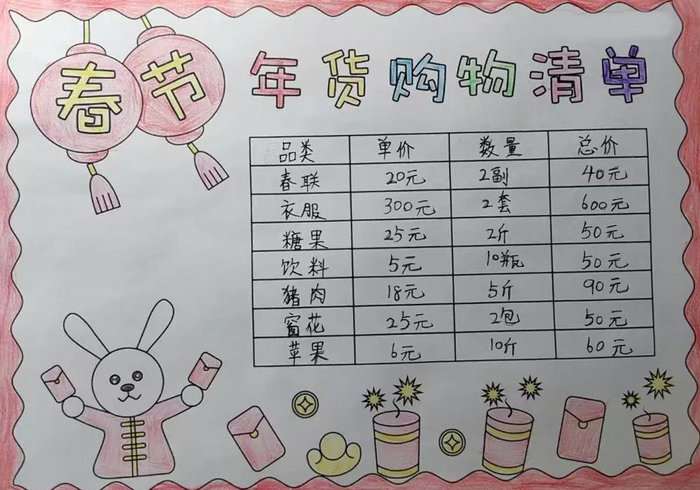 春节
年货购物清单
品类 单价 数量 总价
春联 20元 2副 40元
衣服 300元 2套 600元
糖果 25元 2斤 50元
饮料 5元 10瓶 50元
猪肉 18元 5斤 90元
窗花 25元 2包 50元
苹果 6元 10斤 60元